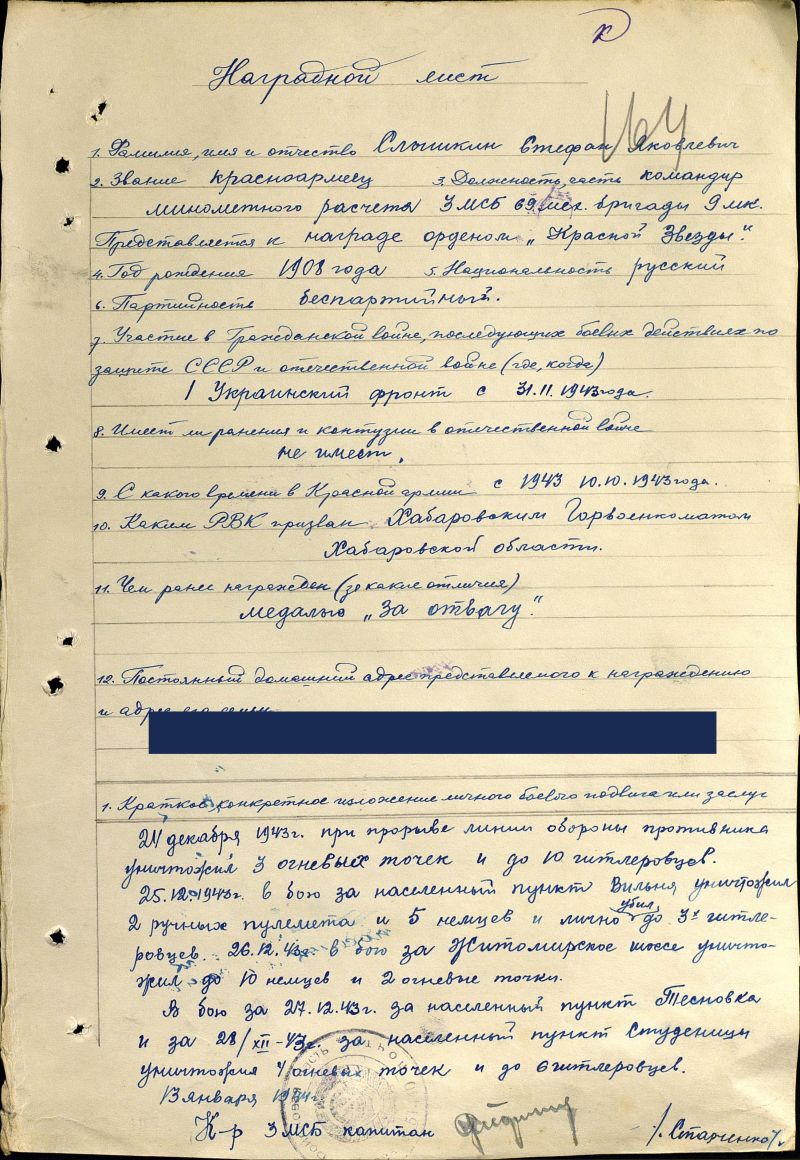 Наградной лист
1. Фамилия, имя и отчество Слышкин Стефан Яковлевич
2. Звание красноармеец 3. Должность, часть командир
минометного расчета 3 МСБ 69 мех. бригады 9 мк.
Представляется к награде орденом „Красной Звезды".
4. Год рождения 1908 года 5. Национальность русский
6. Партийность беспартийный.
7. Участие в Гражданской войне, последующих боевых действиях по
защите СССР и отечественной войне (где, когда)
1 Украинский фронт с 31.11.1943 года.
8. Имеет ли ранения и контузии в отечественной войне
не имеет.
9. С какого времени в Красной армии с 1943 10.10.1943 года.
10. Каким РВК призван Хабаровским Горвоенкоматом
Хабаровской области.
11. Чем ранее награжден (за какие отличия)
медалью „За отвагу".
12. Постоянный домашний адрес представляемого к награждению
и адрес его семьи
1. Краткое, конкретное изложение личного боевого подвига или заслуг
24 декабря 1943 г. при прорыве линии обороны противника
уничтожил 3 огневых точек и до 10 гитлеровцев.
25.12.1943г. в бою за населенный пункт Вильня уничтожил
2 ручных пулемета и 5 немцев и лично убил до 3х гитле-
ровцев. 26.12.43г. в бою за Житомирское шоссе уничто-
жил до 10 немцев и 2 огневые точки.
В бою за 27.12.43г. за населенный пункт Тесновка
и за 28/XII-43г. за населенный пункт Студеницы
уничтожил 4 огневых точек и до 6 гитлеровцев.
13 января 1944г.
К-р 3 МСБ капитан /Старченко/